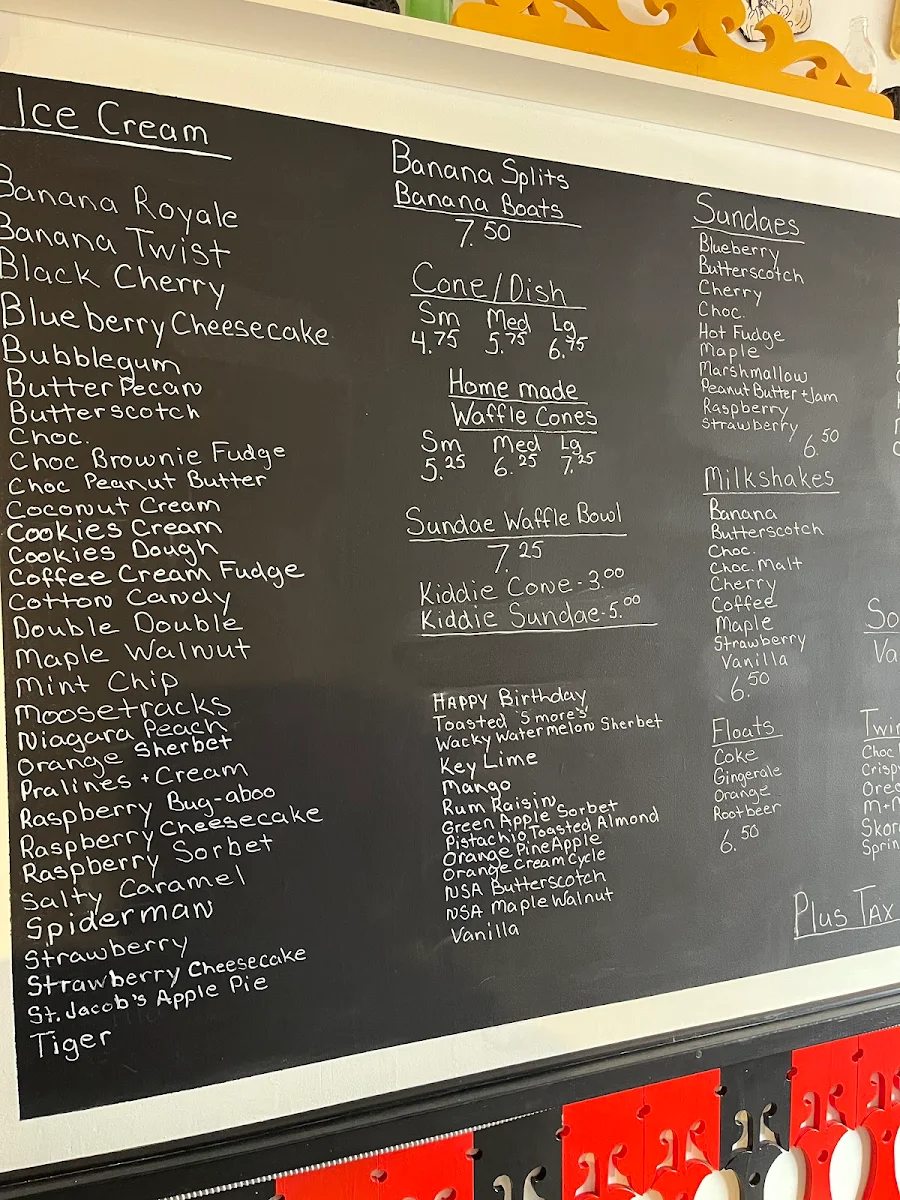 Ice Cream
Banana Royale
Banana Twist
Black Cherry
Blueberry Cheesecake
Bubblegum
Butter Pecan
Butterscotch
Choc.
Choc Brownie Fudge
Choc Peanut Butter
Coconut Cream
Cookies Cream
Cookies Dough
Coffee Cream Fudge
Cotton Candy
Double Double
Maple Walnut
Mint Chip
Moosetracks
Niagara Peach
Orange Sherbet
Pralines + Cream
Raspberry Bug-aboo
Raspberry Cheesecake
Raspberry Sorbet
Salty Caramel
Spiderman
Strawberry
Strawberry Cheesecake
St. Jacob's Apple Pie
Tiger
Banana Splits
Banana Boats
7.50
Cone/Dish
Sm Med Lg
4.75 5.75 6.75
Home made
Waffle Cones
Sm Med Lg
5.25 6.25 7.25
Sundae Waffle Bowl
7.25
Kiddie Cone - 3.00
Kiddie Sundae - 5.00
Happy Birthday
Toasted S'more's
Wacky Watermelon Sherbet
Key Lime
Mango
Rum Raisin
Green Apple Sorbet
Pistachio Toasted Almond
Orange PineApple
Orange Cream Cycle
NSA Butterscotch
NSA Maple Walnut
Vanilla
Sundaes
Blueberry
Butterscotch
Cherry
Choc.
Hot Fudge
Maple
Marshmallow
Peanut Butter + Jam
Raspberry
Strawberry
6.50
Milkshakes
Banana
Butterscotch
Choc.
Choc. Malt
Cherry
Coffee
Maple
Strawberry
Vanilla
6.50
Floats
Coke
Gingerale
Orange
Rootbeer
6.50
So
Va
Twi
Choc
Crisp
Ore
M+M
Skor
Sprin
Plus Tax